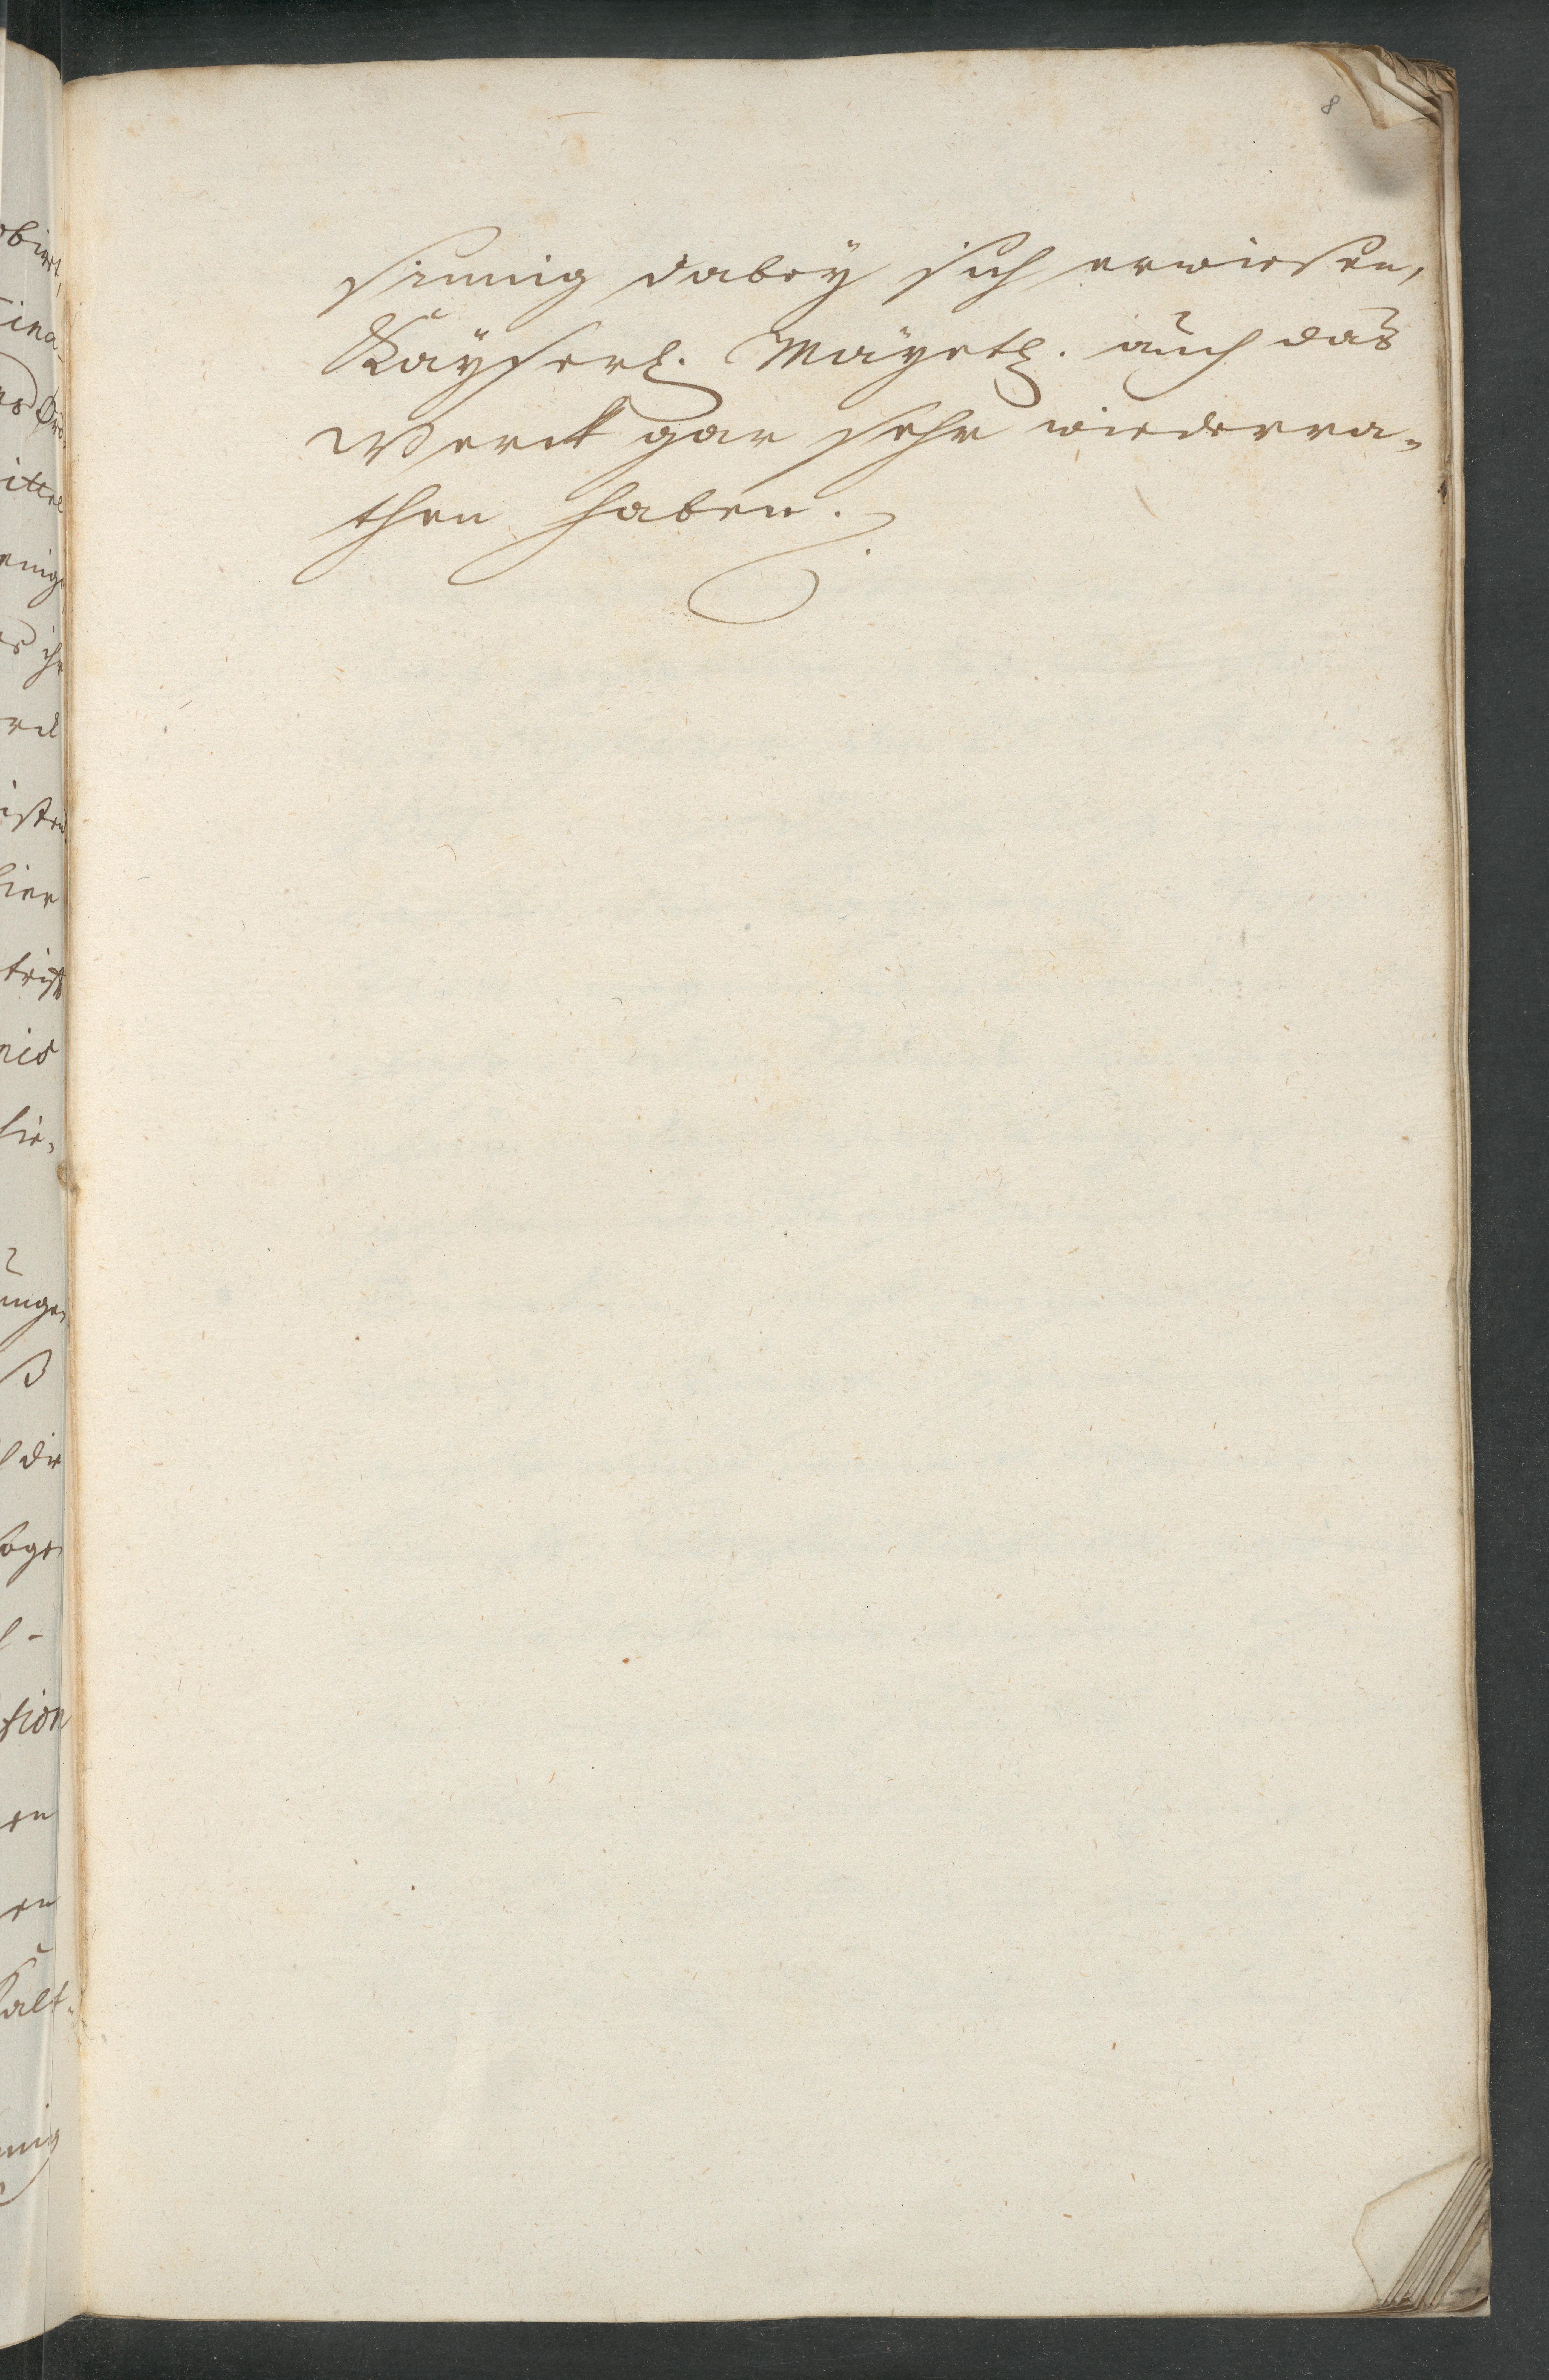 8
sinnig dabey sich erwiesen,
Kayserl. Mayetl. auch das
Werck gar sehr wiederra-
then haben.